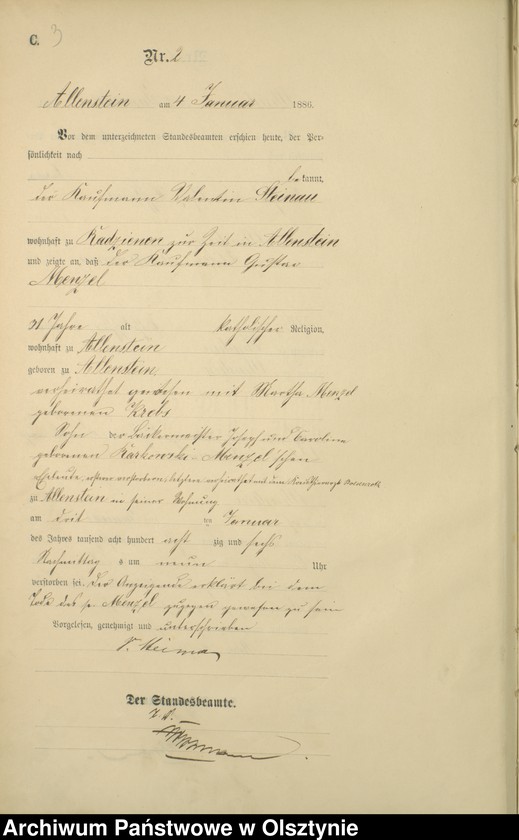 C. 3
Nr. 2
Allenstein am 4 Januar 1886.
Vor dem unterzeichneten Standesbeamten erschien heute, der Per-
sönlichkeit nach
bekannt,
der Kaufmann Valentin Steinau
wohnhaft zu Radzienen zur Zeit in Allenstein
und zeigte an, daß der Kaufmann Gustav
Menzel
Jahre alt katholischer Religion,
wohnhaft zu Allenstein
geboren zu Allenstein,
verheirathet gewesen mit Martha Menzel
geborenen Krebs
Sohn der Bäckermeister Joseph und Caroline
geborenen Karkowski-Menzel'schen
Eheleute
zu Allenstein in seiner Wohnung
am drit ten Januar
des Jahres tausend acht hundert acht zig und sechs
Nachmittag s um neun Uhr
verstorben sei. Der Anzeigende erklärt bei dem
Tode des p. Menzel zugegen gewesen zu sein
Vorgelesen, genehmigt und unterschrieben
V.
Der Standesbeamte.
Archiwum Państwowe w Olsztynie